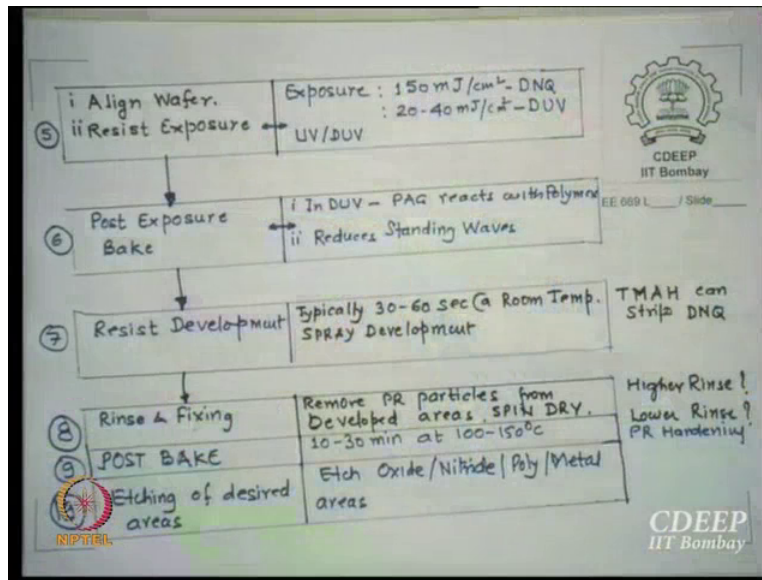 ⑤ i Align Wafer.
ii Resist Exposure ↔
Exposure : 150 mJ/cm² - DNQ
: 20-40 mJ/cm² - DUV
UV/DUV
CDEEP
IIT Bombay
EE 669 L____ / Slide____
⑥ Post Exposure
Bake ↔
i In DUV - PAG reacts with Polymer
ii Reduces Standing Waves
⑦ Resist Development
Typically 30-60 sec @ Room Temp.
SPRAY Development
TMAH can
Strip DNQ
⑧ Rinse & Fixing
Remove PR particles from
Developed areas. SPIN DRY.
Higher Rinse?
Lower Rinse?
⑨ POST BAKE
10-30 min at 100-150°C
PR Hardening
Etching of desired
areas
Etch Oxide/Nitride/Poly/Metal
areas
NPTEL
CDEEP
IIT Bombay